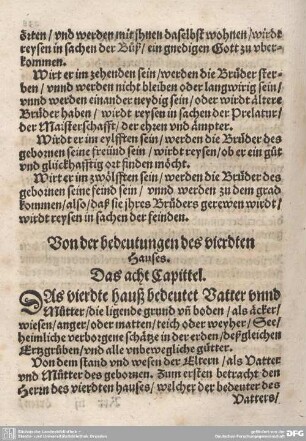 örten / vnd werden mit jhnen daselbst wohnen / wirdt
reysen in sachen der Büß / ein gnedigen Gott zu vber-
kommen.
Wirt er im zehenden sein / werden die Brüder ster-
ben / vnnd werden nicht bleiben oder langwirig sein /
vnnd werden einander neydig sein / oder wirdt ältere
Brüder haben / wirdt reysen in sachen der Prelatur /
der Maisterschafft / der ehren vnd ämpter.
Wirdt er im eylfften sein / werden die Brüder des
gebornen seine freünd sein / wirdt reysen / ob er ein güt
vnd glückhafftig ort finden möcht.
Wirt er im zwölfften sein / werden die Brüder des
gebornen seine feind sein / vnnd werden zu dem grad
kommen / also / daß sie jhres Brüders gerewen wirdt /
wirdt reysen in sachen der feinden.
Von der bedeutungen des vierdten
Hauses.
Das acht Capittel.
DAs vierdte hauß bedeutet Vatter vnnd
Mütter / die ligende grund vñ boden / als äcker /
wiesen / anger / oder matten / teich oder weyher / See /
heimliche verborgene schätze in der erden / deßgleichen
Ertzgrüben / vnd alle vnbewegliche gütter.
Von dem stand vnd wesen der Eltern / als Vatter
vnd Mütter des gebornen. Zum ersten betracht den
Herrn des vierdten hauses / welcher der bedeuter des
Vatters /